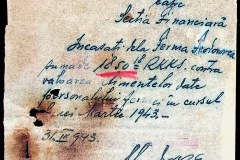 către
Secția Financiară
Încasați dela Ferma
suma de 1850 RKKS. contra
valoarea alimentelor date
personalului fermei în cursul
lunei Martie 1943.-
31.III.943.